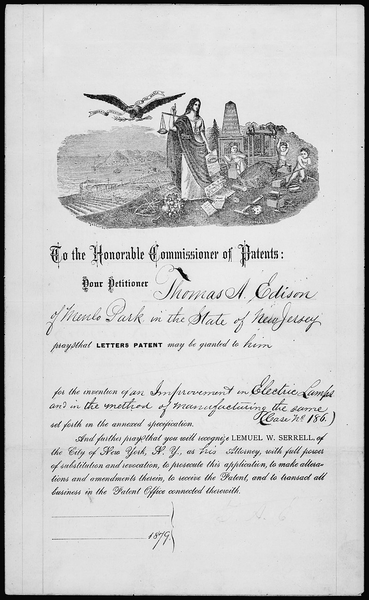 To the Honorable Commissioner of Patents:
Your Petitioner Thomas A. Edison
of Menlo Park in the State of New Jersey
prays that LETTERS PATENT may be granted to him
for the invention of an Improvement in Electric Lamps
and in the method of manufacturing the same
(Case No 186.)
set forth in the annexed specification.
And further prays that you will recognize LEMUEL W. SERRELL, of
the City of New York, N. Y., as his Attorney, with full powers
of substitution and revocation, to prosecute this application, to make altera-
tions and amendments therein, to receive the Patent, and to transact all
business in the Patent Office connected therewith.
1879